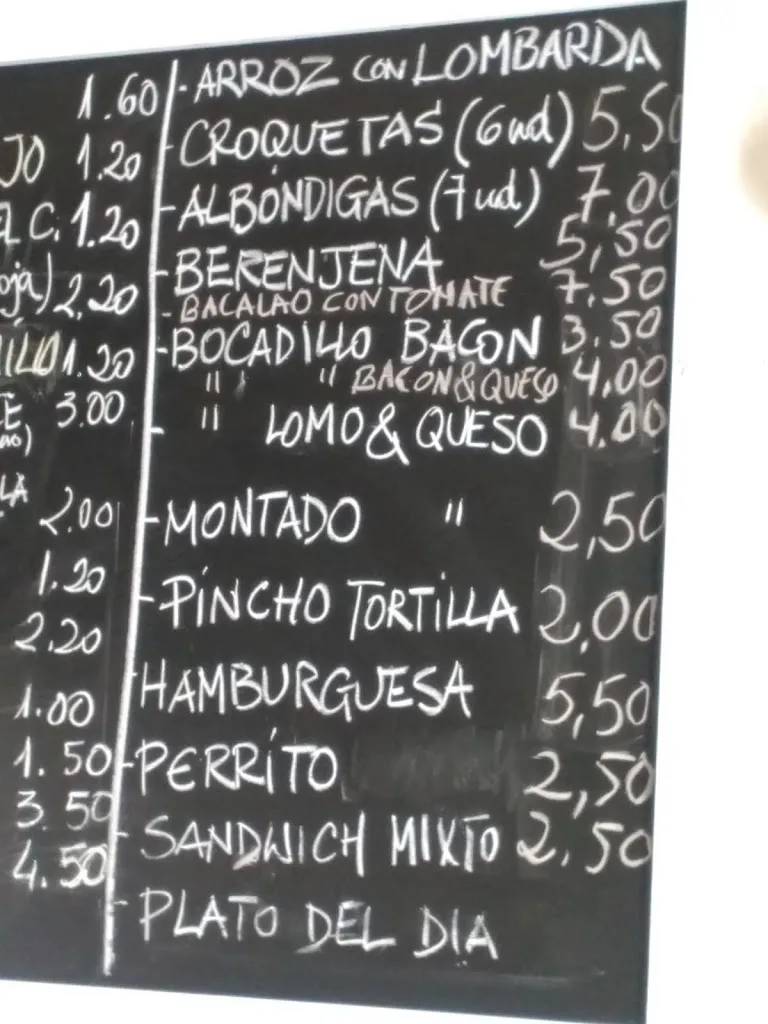 1.60
JO 1.20
EL C. 1.20
oja) 2,20
ILLO 1.20
3.00
LA
2.00
1.20
2.20
1.00
1.50
3.50
4.50
- ARROZ CON LOMBARDA
- CROQUETAS (6 ud) 5,50
- ALBÓNDIGAS (7 ud) 7,00
- BERENJENA 5,50
- BACALAO CON TOMATE 7.50
- BOCADILLO BACON 3.50
" " BACON & QUESO 4,00
- " LOMO & QUESO 4.00
- MONTADO " 2,50
- PINCHO TORTILLA 2,00
HAMBURGUESA 5,50
- PERRITO 2,50
- SANDWICH MIXTO 2.50
- PLATO DEL DIA